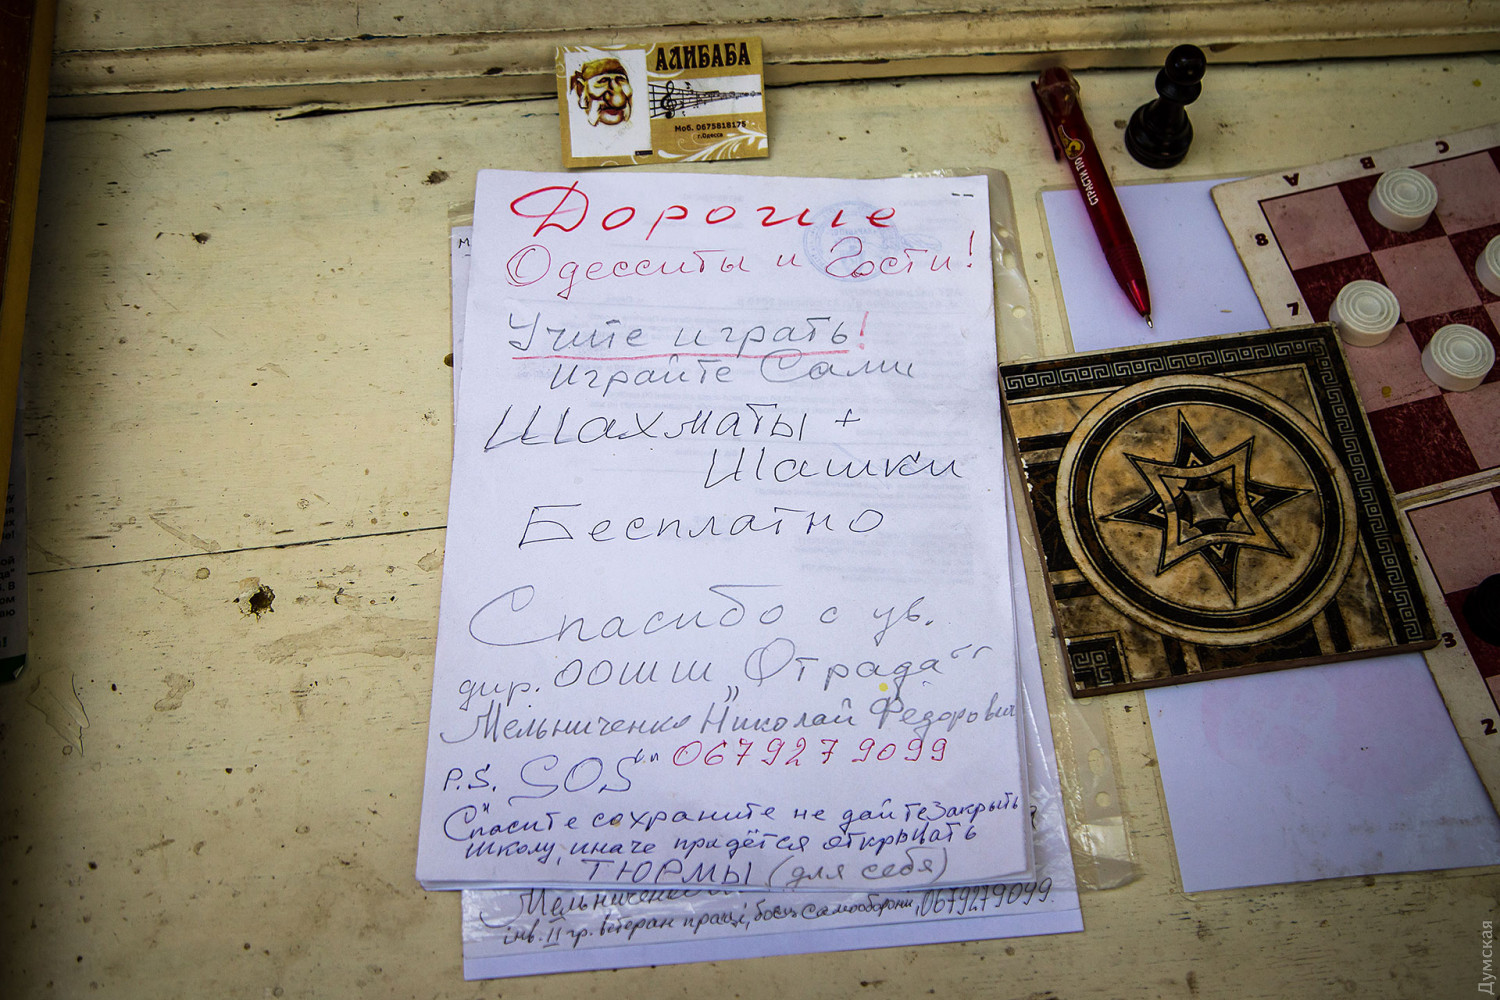 АЛИБАБА
Моб. 0675818175
г.Одесса
Дорогие
Одесситы и Гости!
Учите играть!
играйте Сами
Шахматы +
Шашки
Бесплатно
Спасибо с ув.
дир. ООШШ „Отрада“
Мельниченко Николай Федорович
P.S. "SOS" 0679279099
Спасите сохраните не дайте закрыть
школу, иначе придётся открывать
ТЮРМЫ (для себя)
Мельниченко
інв. II гр. ветеран праці, боєць Самооборони, 0679279099
СТРАСТИ ПО
А В С
8
7
3
2
Думская